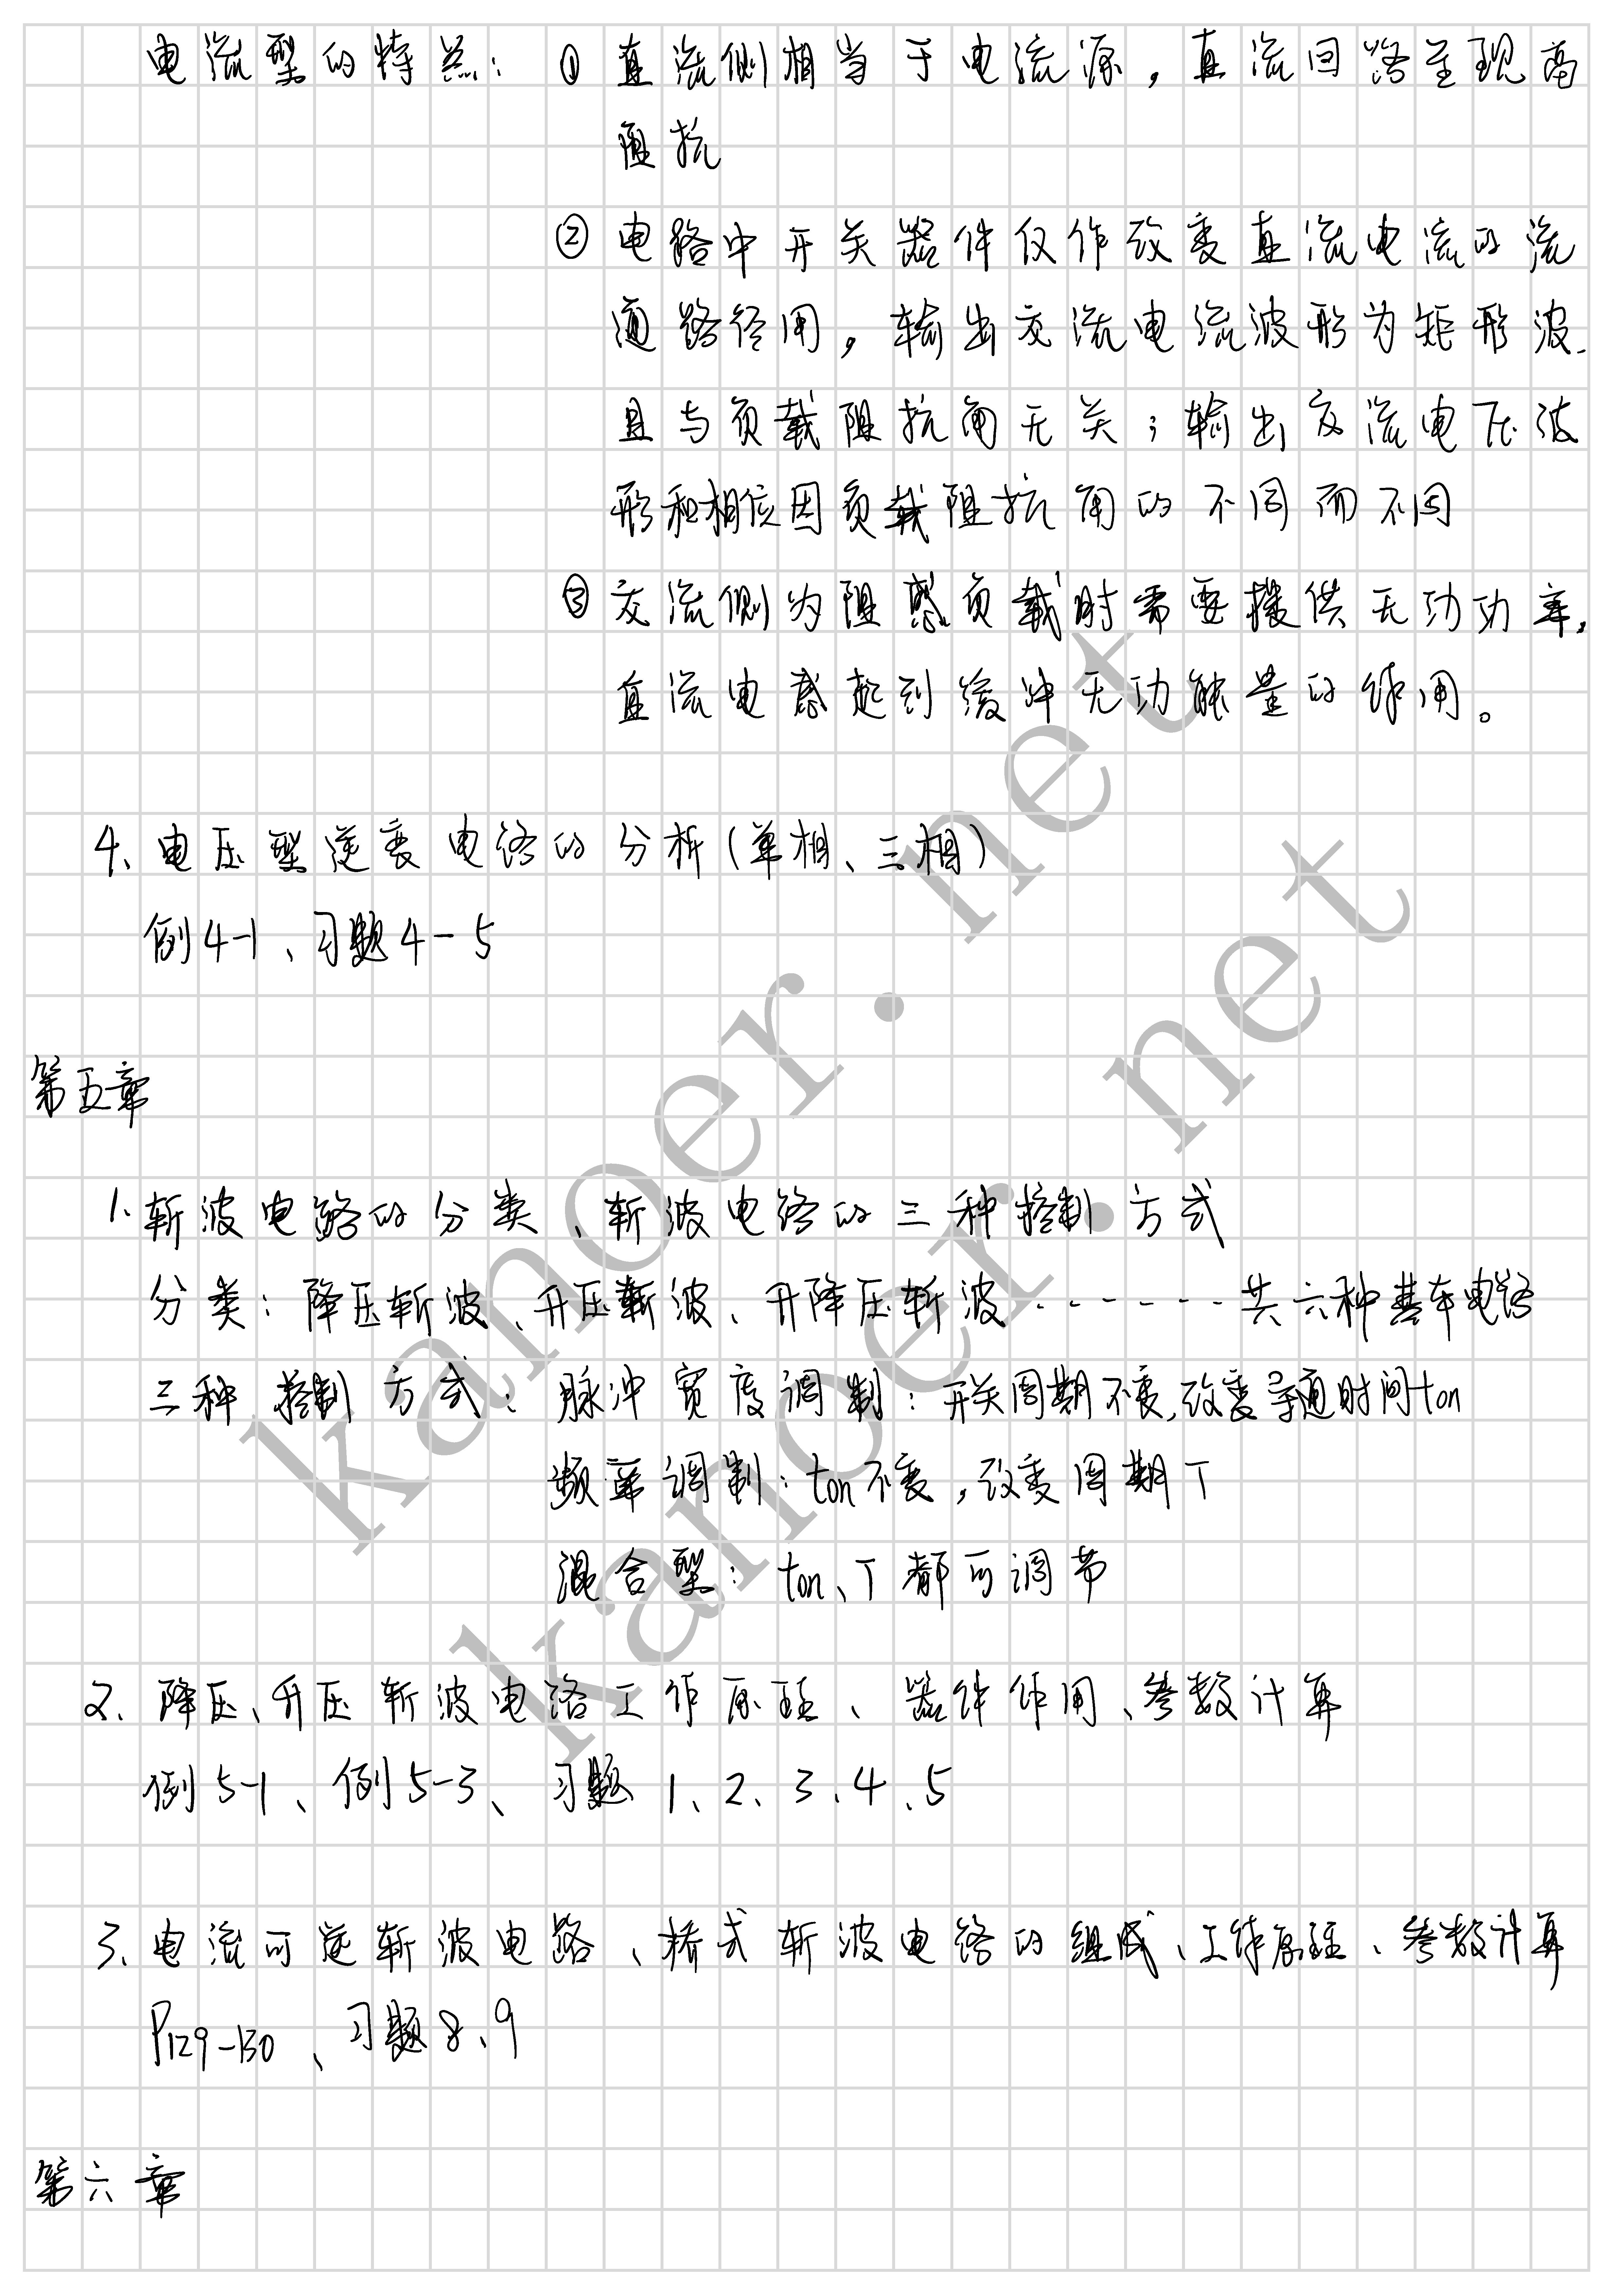 电流型的特点：① 直流侧相当于电流源，直流回路呈现高
阻抗
② 电路中开关器件仅作改变直流电流的流
通路径用，输出交流电流波形为矩形波、
且与负载阻抗角无关；输出交流电压波
形和相位因负载阻抗角的不同而不同
③ 交流侧为阻感负载时需要提供无功功率，
直流电感起到缓冲无功能量的作用。
4、电压型逆变电路的分析（单相、三相）
例4-1、习题4-5
第五章
1、斩波电路的分类、斩波电路的三种控制方式
分类：降压斩波、升压斩波、升降压斩波 ······· 共六种基本电路
三种控制方式：脉冲宽度调制：开关周期不变,改变导通时间ton
频率调制：ton不变，改变周期T
混合型：ton、T都可调节
2、降压、升压斩波电路工作原理、器件作用、参数计算
例5-1、例5-3、习题1、2、3、4、5
3、电流可逆斩波电路、桥式斩波电路的组成、工作原理、参数计算
P129-130、习题8、9
第六章
kanoer.net
kanoer.net